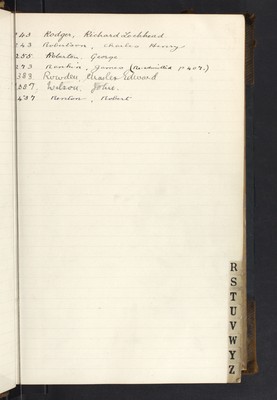 243 Rodger, Richard Lockhead
243 Robertson, Charles Henry
255 Roberton, George
273 Rankin, James (Readmitted p 407.)
383 Rowden, Charles Edward
387, Wilson, John.
407 Renton, Robert
R
S
T
U
V
W
Y
Z